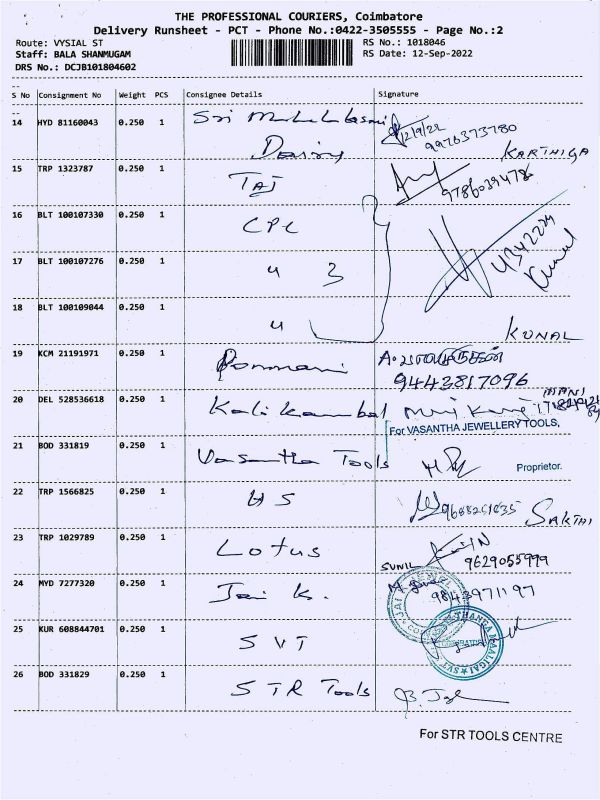 THE PROFESSIONAL COURIERS, Coimbatore
Delivery Runsheet - PCT - Phone No.:0422-3505555 - Page No.:2
Route: VYSIAL ST
RS No.: 1018046
Staff: BALA SHANMUGAM
RS Date: 12-Sep-2022
DRS No.: DCJB101804602
S No Consignment No Weight PCS Consignee Details Signature
14 HYD 81160043 0.250 1 Sri 12/9/22
9976373780
Dairy KARTHIGA
15 TRP 1323787 0.250 1 TAJ 9786039478
16 BLT 100107330 0.250 1 CPC
4342224
Kunal
17 BLT 100107276 0.250 1 " 3
18 BLT 100109044 0.250 1 "
KUNAL
19 KCM 21191971 0.250 1 Ponmani A.
9443817096
20 DEL 528536618 0.250 1 Kalikambal MANI
For VASANTHA JEWELLERY TOOLS,
21 BOD 331819 0.250 1 Vasantha Tools Proprietor.
22 TRP 1566825 0.250 1 SAKTHI
23 TRP 1029789 0.250 1 Lotus SUNIL 9629055999
24 MYD 7277320 0.250 1 Jai K. 9843971197
25 KUR 608844701 0.250 1 SVT
26 BOD 331829 0.250 1 STR Tools
For STR TOOLS CENTRE